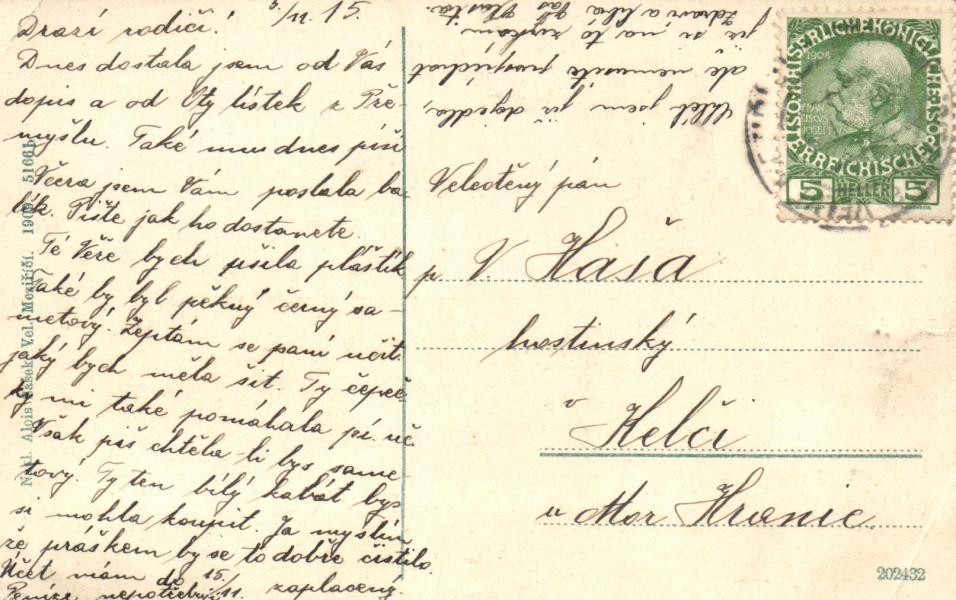 5/11. 15.
Drazí rodiči!
Dnes dostala jsem od Vás
dopis a od Oty lístek z Pře-
myšlu. Také mu dnes píši
Včera jsem Vám poslala ba-
lík. Pište jak ho dostanete.
Té Věře bych ušila pláštík
Také by byl pěkný černý sa-
metový. Zeptám se paní učit.
jaký bych měla šít. Ty čepeč-
ky mi také pomáhala pí. uč.
Však piš chtěla li bys same-
tový. Ty ten bílý kabát bys
si mohla koupit. Ja myslím
že práškem by se to dobře čistilo.
Účet mám do 15/11. zaplacený
Peníze nepotřebuji
jsem již dojedla,
ale nemusíte
již si na to zvykám
Zdraví a líbá Vás Vlasta.
Velectěný pán
p. V Haša
hostinský
v Kelči
u Mor Hranic.
KAISERLICHE KÖNIGLICHE
ÖSTERREICHISCHE POST
1908
FRAN
CISCUS
JOSEF I
5 HELLER 5
Nákl. Alois Vašek, Vel. Meziříčí. 1909 51661
202432